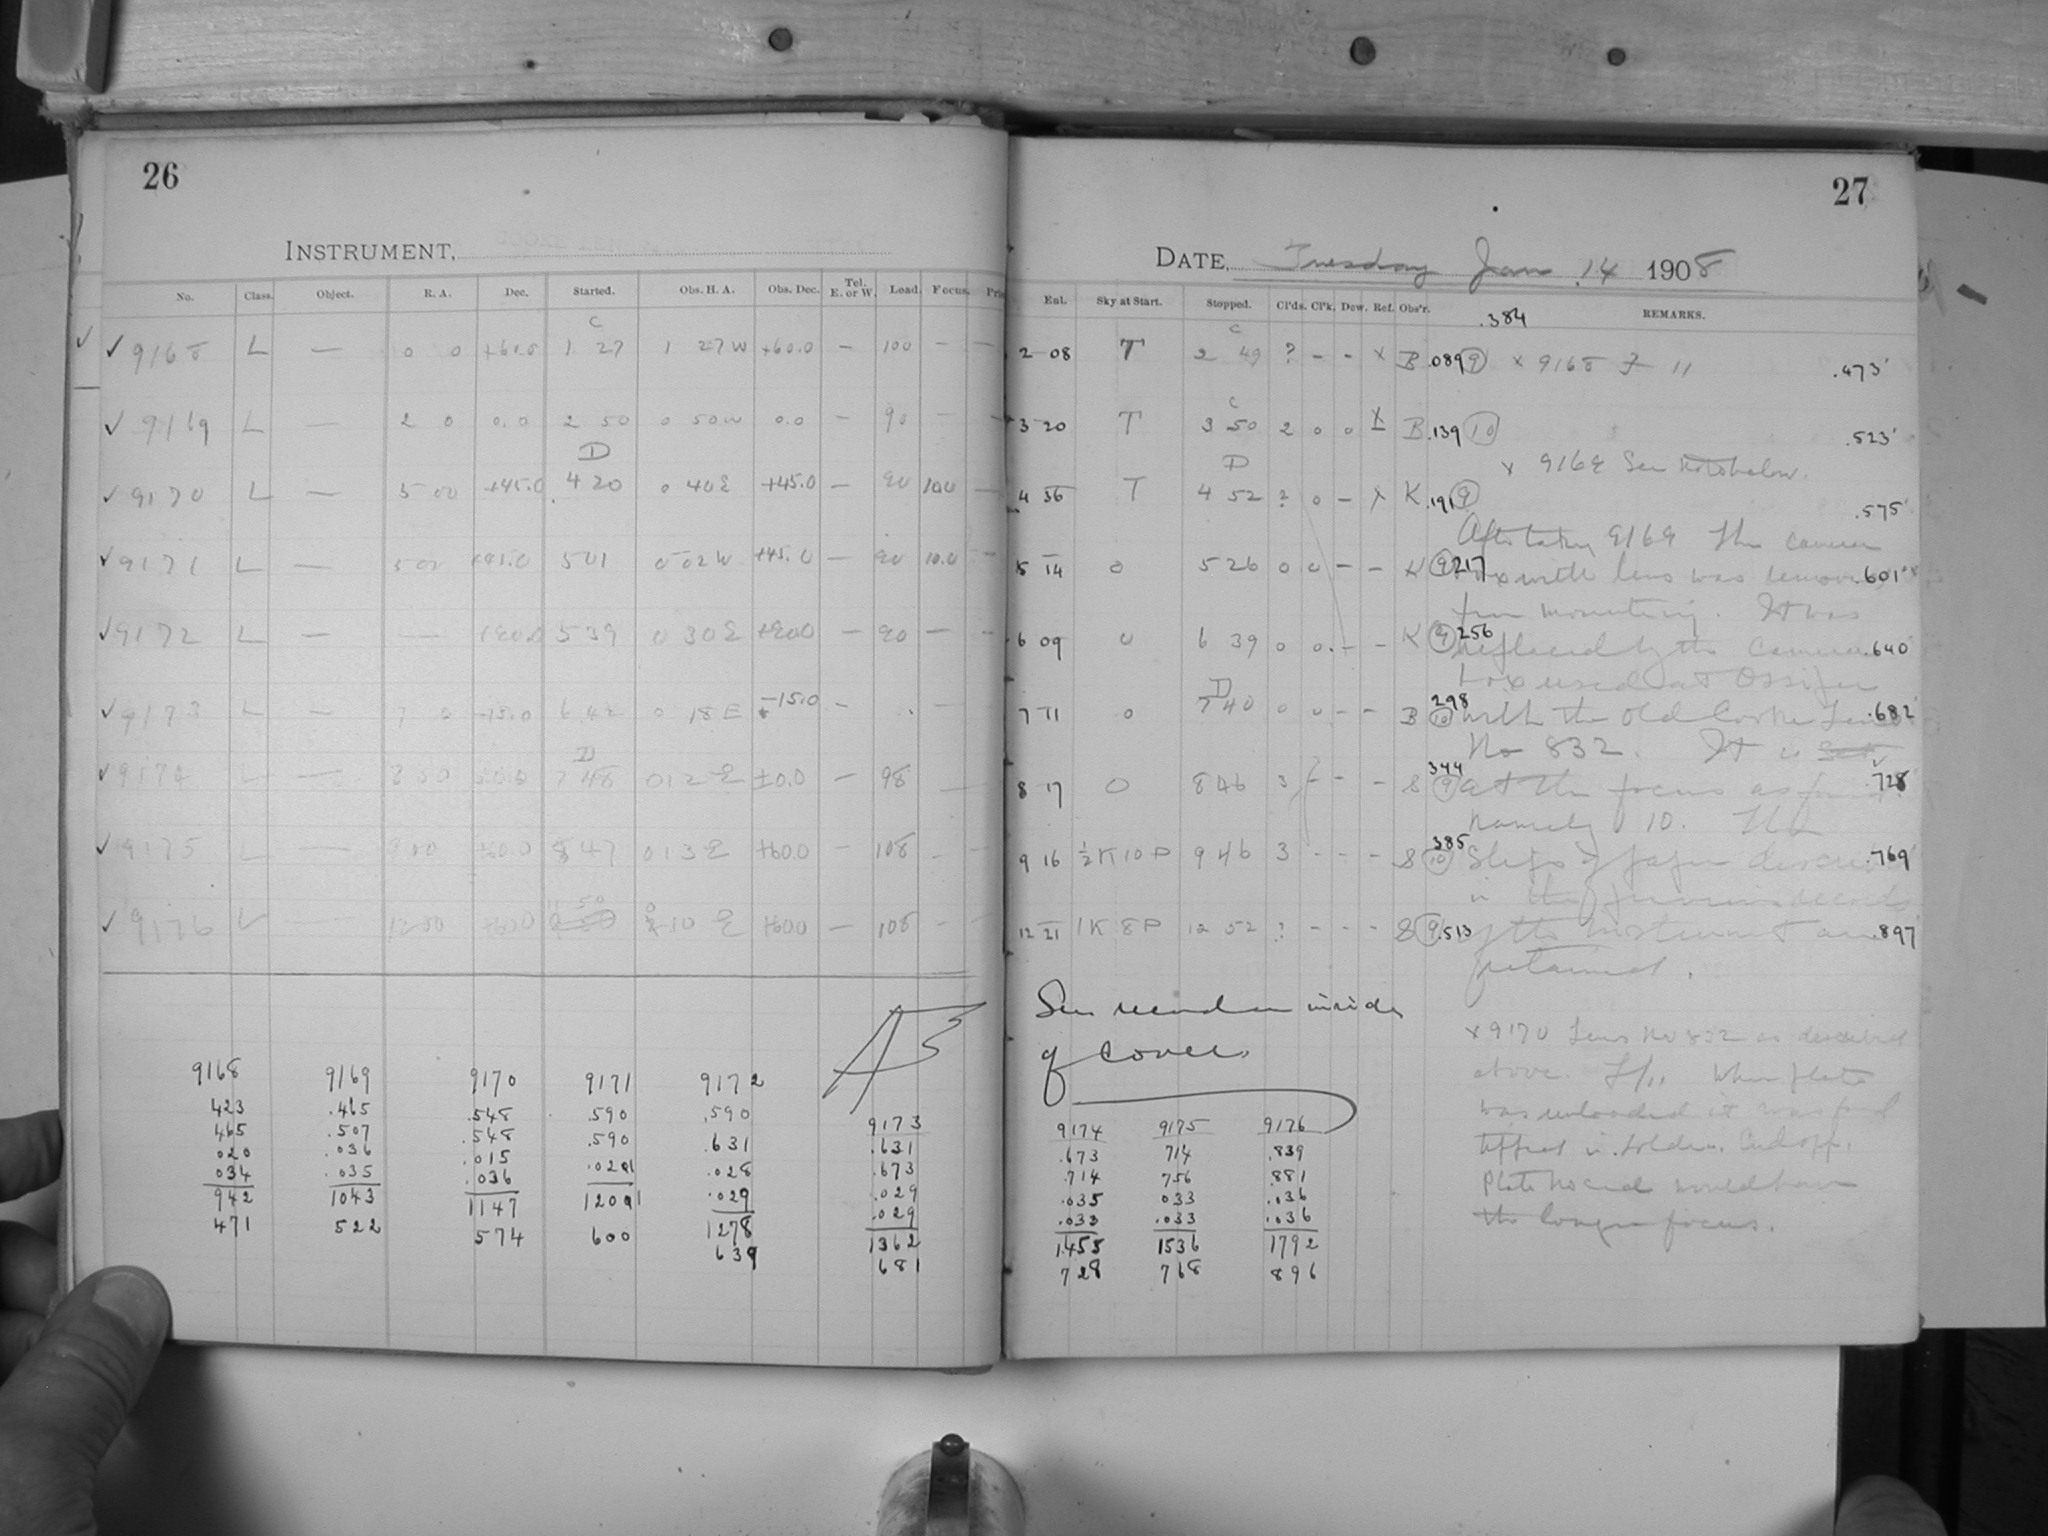 26
INSTRUMENT,
No. Class. Object. R. A. Dec. Started. Obs. H. A. Obs. Dec. Tel. E. or W. Load. Focus.
✓ 9168 L — 0 0 +60.0 C 1 27 1 27 W +60.0 — 100 — —
✓ 9169 L — 2 0 0.0 2 50 0 50 W 0.0 — 90 — —
✓ 9170 L — 5 00 +45.0 D 4 20 0 40 E +45.0 — 90 10.0 —
✓ 9171 L — 5 00 +45.0 5 01 0 02 W +45.0 — 90 10.0 —
✓ 9172 L — — +90.0 5 39 0 30 E +90.0 — 90 — —
✓ 9173 L — 7 0 -15.0 6 42 0 18 E -15.0 —
✓ 9174 L — 8 00 D 7 48 0 12 E ±0.0 — 98 —
✓ 9175 L — 9 00 +60.0 8 47 0 13 E +60.0 — 108 — —
✓ 9176 L — 12 00 +60.0 11 50 0 10 E +60.0 — 108 — —
9168 9169 9170 9171 9172 9173
423 .465 .548 .590 .590 .631
465 .507 .548 .590 .631 .673
020 .036 .015 .028 .029
034 .035 .036 .029 .029
942 1043 1147 1278 1362
471 522 574 600 639 681
27
DATE, Tuesday Jan 14 1908
Ent. Sky at Start. Stopped. Cl'ds. Cl'k. Dew. Ref. Obs'r. .384 REMARKS.
2 08 T C 2 49 ? - - x B .089 (9) x 9168 F 11 .473'
3 20 T C 3 50 2 0 0 x B .139 (10) .523'
x 9169 See Note below.
4 36 T D 4 52 ? 0 - x K .191 (9) .575'
After taking 9169 The camera
5 14 0 5 26 0 0 - - K (9) .217 box with lens was removed .601'
from mounting. It was
6 09 0 6 39 0 0 - - K (9) 256 replaced by the Camera .640'
box used at
7 11 0 D 7 40 0 0 - - B 298 (10) with the old Cooke Lens .682'
No 832. It is
8 17 0 8 46 3 - - - S 344 (9) at the focus as found .728'
namely 10. The
9 16 ½ K 10 P 9 46 3 - - - S 385 (10) Slips of paper described .769'
in the previous records
12 21 1 K 8 P 12 52 ? - - - S (9) .513 of the instrument are .897'
retained.
See record on inside
of cover.
x 9170 Lens No 832 as described
above. F/11 When plate
was unloaded it was found
Plate No end would have
the longer focus.
9174 9175 9176
.673 714 .839
.714 756 .881
.035 033 .036
.033 .033 .036
1.455 1536 1792
728 768 896